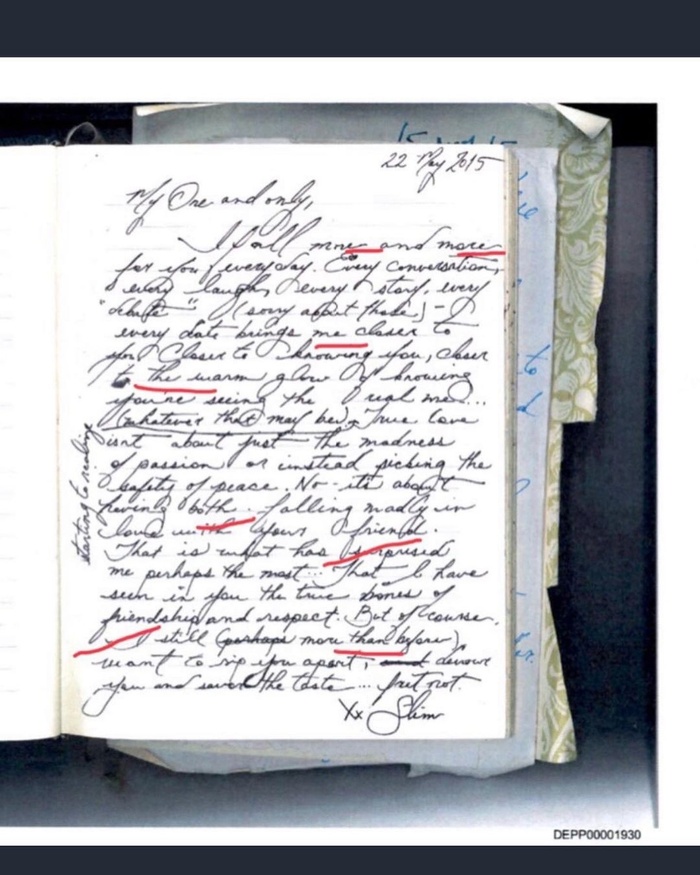 22 May 2015
My One and only,
I fall more and more
for you, everyday. Every conversation,
every laugh, every story, every
"debate" (sorry about those) -
every date brings me closer to
you. Closer to knowing you, closer
to the warm glow of knowing
you're seeing the real me...
(whatever that may be). True love
isnt about just the madness
of passion or instead picking the
safety of peace. No - its about
having both. falling madly in
love with your friend.
That is what has surprised
me perhaps the most... That I have
seen in you the true bones of
friendship and respect. But of course,
I still (perhaps more than before)
want to rip you apart, and devour
you and savor the taste... fret not.
Xx Slim
starting to realize
DEPP00001930